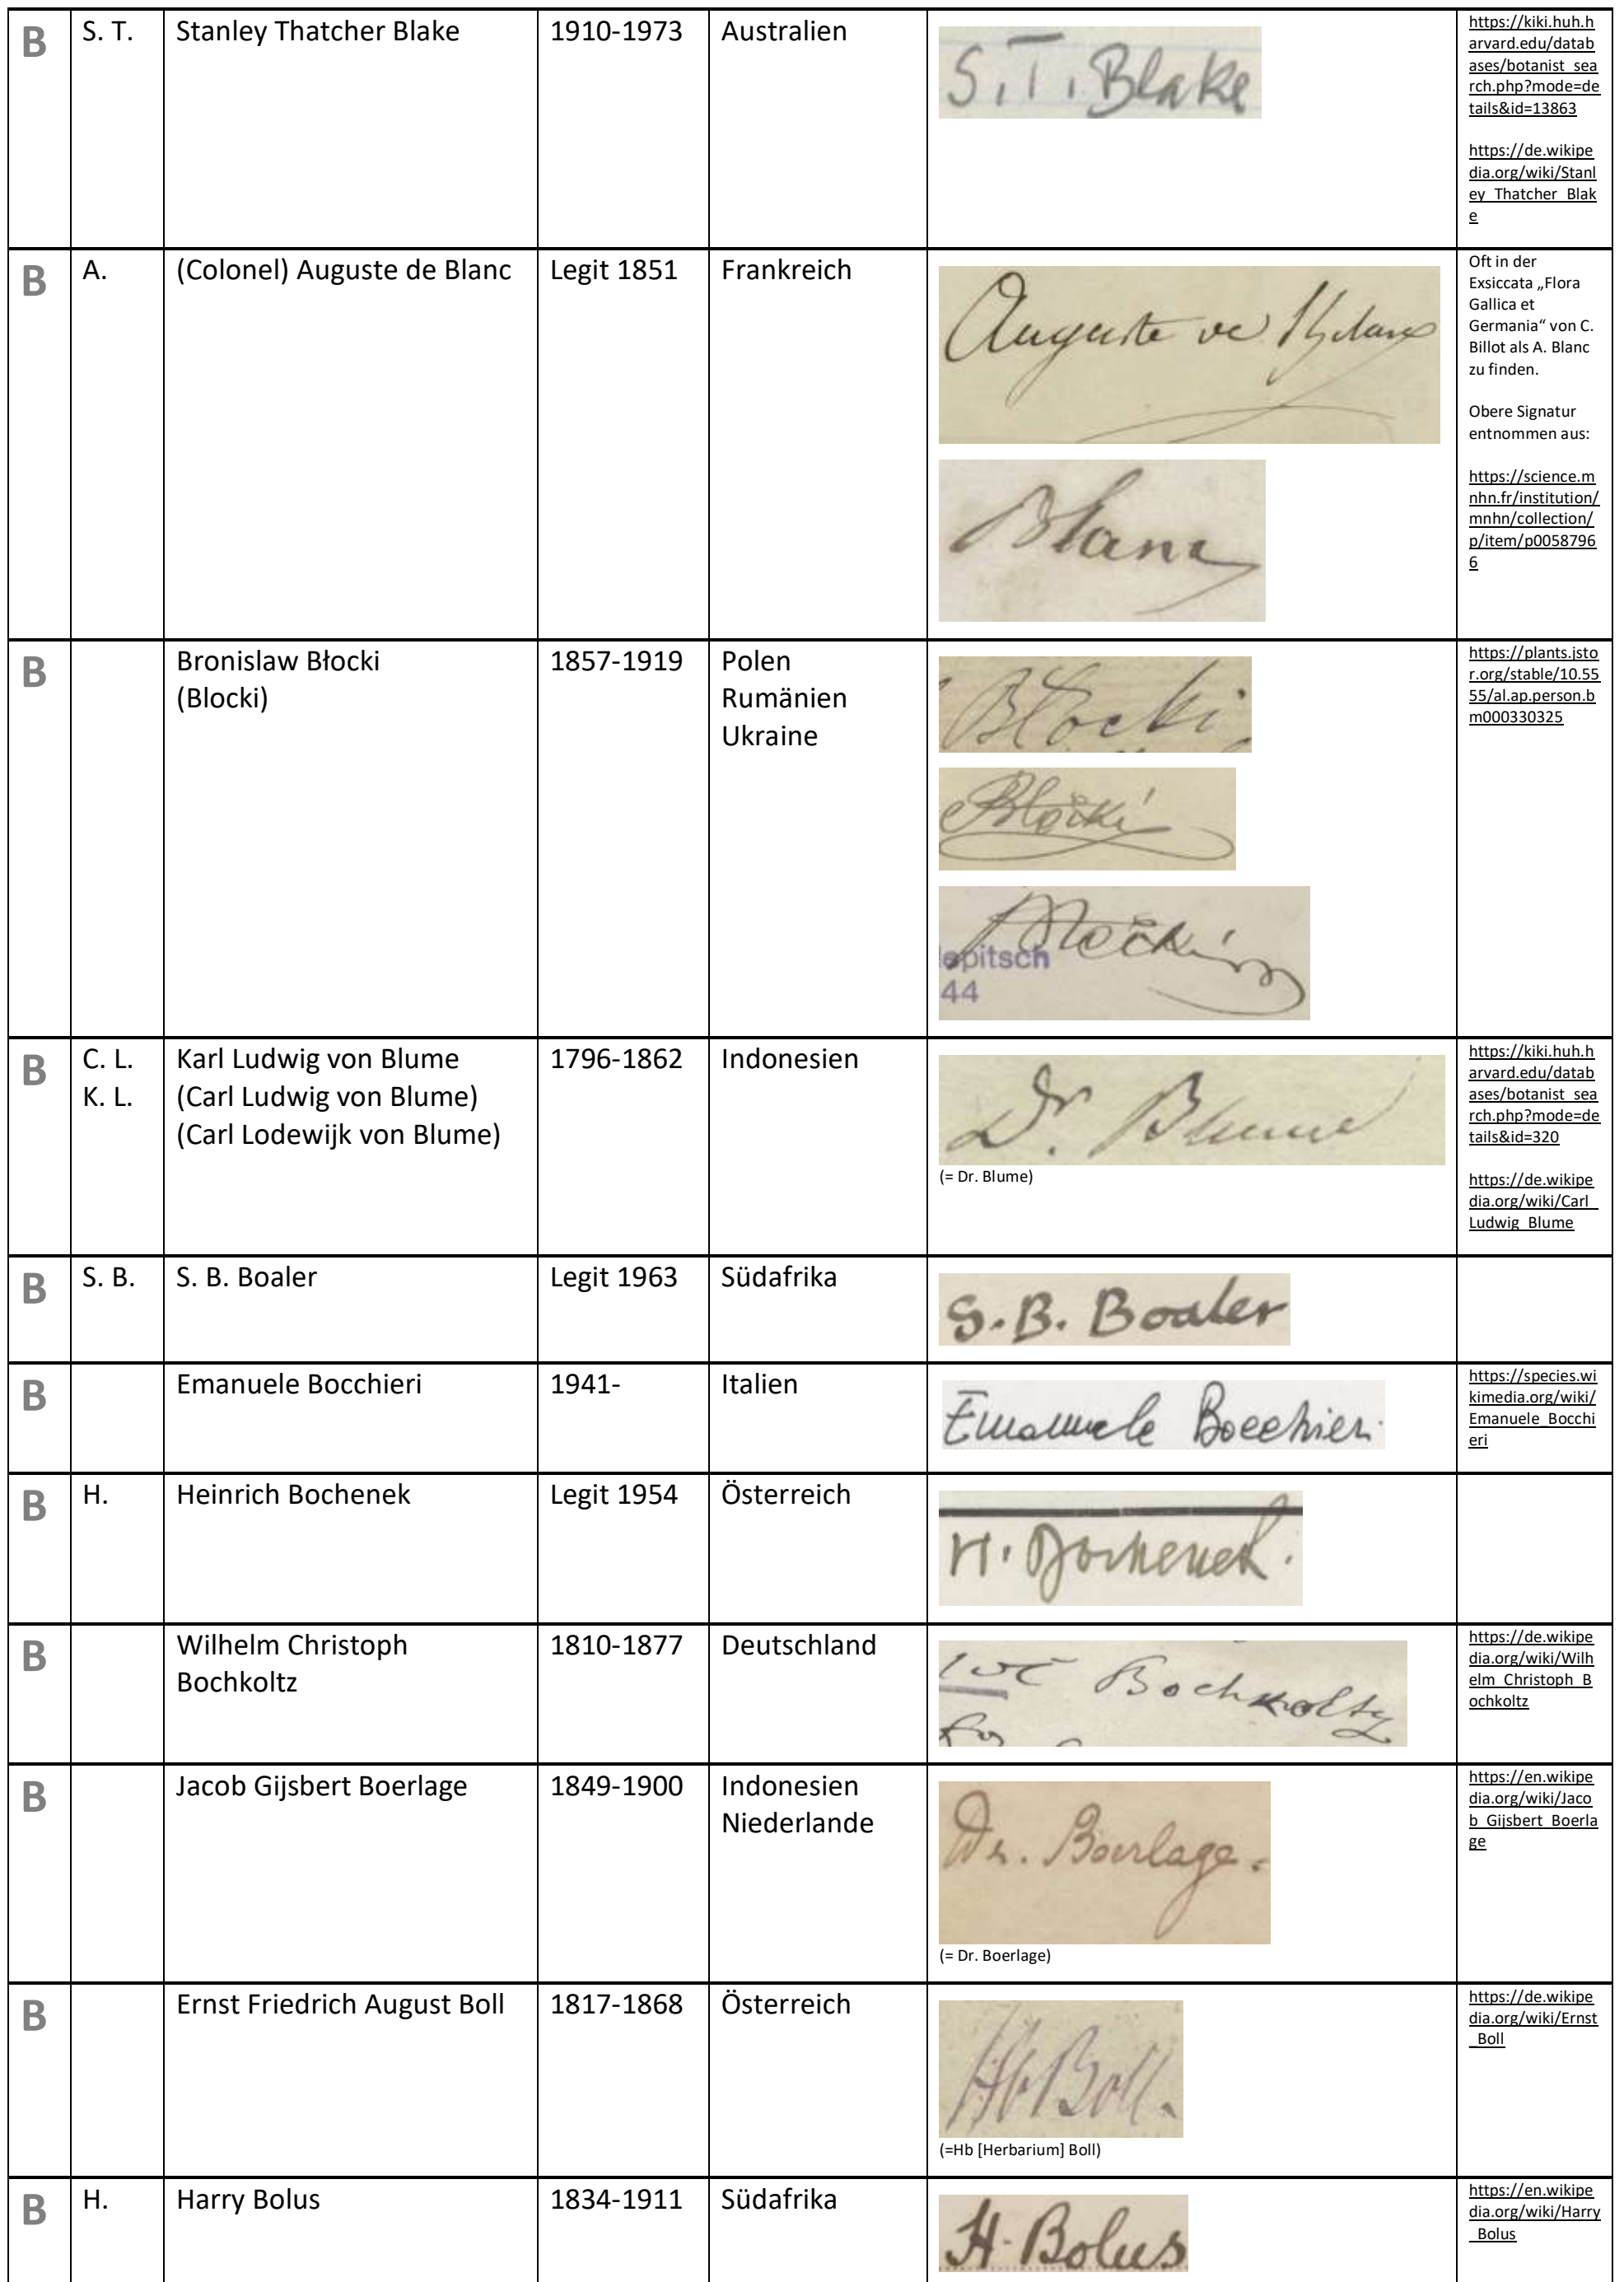 B
S. T.
Stanley Thatcher Blake
1910-1973
Australien
S. T. Blake
https://kiki.huh.h
arvard.edu/datab
ases/botanist_sea
rch.php?mode=de
tails&id=13863
https://de.wikipe
dia.org/wiki/Stanl
ey_Thatcher_Blak
e
B
A.
(Colonel) Auguste de Blanc
Legit 1851
Frankreich
Auguste de Blanc
Blanc
Oft in der
Exsiccata „Flora
Gallica et
Germania“ von C.
Billot als A. Blanc
zu finden.
Obere Signatur
entnommen aus:
https://science.m
nhn.fr/institution/
mnhn/collection/
p/item/p0058796
6
B
Bronislaw Błocki
(Blocki)
1857-1919
Polen
Rumänien
Ukraine
Błocki
Błocki
Błocki
lepitsch
44
https://plants.jsto
r.org/stable/10.55
55/al.ap.person.b
m000330325
B
C. L.
K. L.
Karl Ludwig von Blume
(Carl Ludwig von Blume)
(Carl Lodewijk von Blume)
1796-1862
Indonesien
Dr. Blume
(= Dr. Blume)
https://kiki.huh.h
arvard.edu/datab
ases/botanist_sea
rch.php?mode=de
tails&id=320
https://de.wikipe
dia.org/wiki/Carl_
Ludwig_Blume
B
S. B.
S. B. Boaler
Legit 1963
Südafrika
S. B. Boaler
B
Emanuele Bocchieri
1941-
Italien
Emanuele Bocchieri
https://species.wi
kimedia.org/wiki/
Emanuele_Bocchi
eri
B
H.
Heinrich Bochenek
Legit 1954
Österreich
H. Bochenek.
B
Wilhelm Christoph
Bochkoltz
1810-1877
Deutschland
WC Bochkoltz
https://de.wikipe
dia.org/wiki/Wilh
elm_Christoph_B
ochkoltz
B
Jacob Gijsbert Boerlage
1849-1900
Indonesien
Niederlande
Dr. Boerlage.
(= Dr. Boerlage)
https://en.wikipe
dia.org/wiki/Jaco
b_Gijsbert_Boerla
ge
B
Ernst Friedrich August Boll
1817-1868
Österreich
Hb Boll.
(=Hb [Herbarium] Boll)
https://de.wikipe
dia.org/wiki/Ernst
_Boll
B
H.
Harry Bolus
1834-1911
Südafrika
H. Bolus
https://en.wikipe
dia.org/wiki/Harry
_Bolus